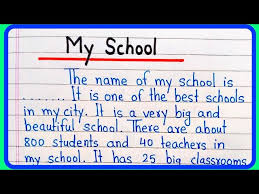 My School
The name of my school is
....... It is one of the best schools
in my city. It is a very big and
beautiful school. There are about
800 students and 40 teachers in
my school. It has 25 big classrooms